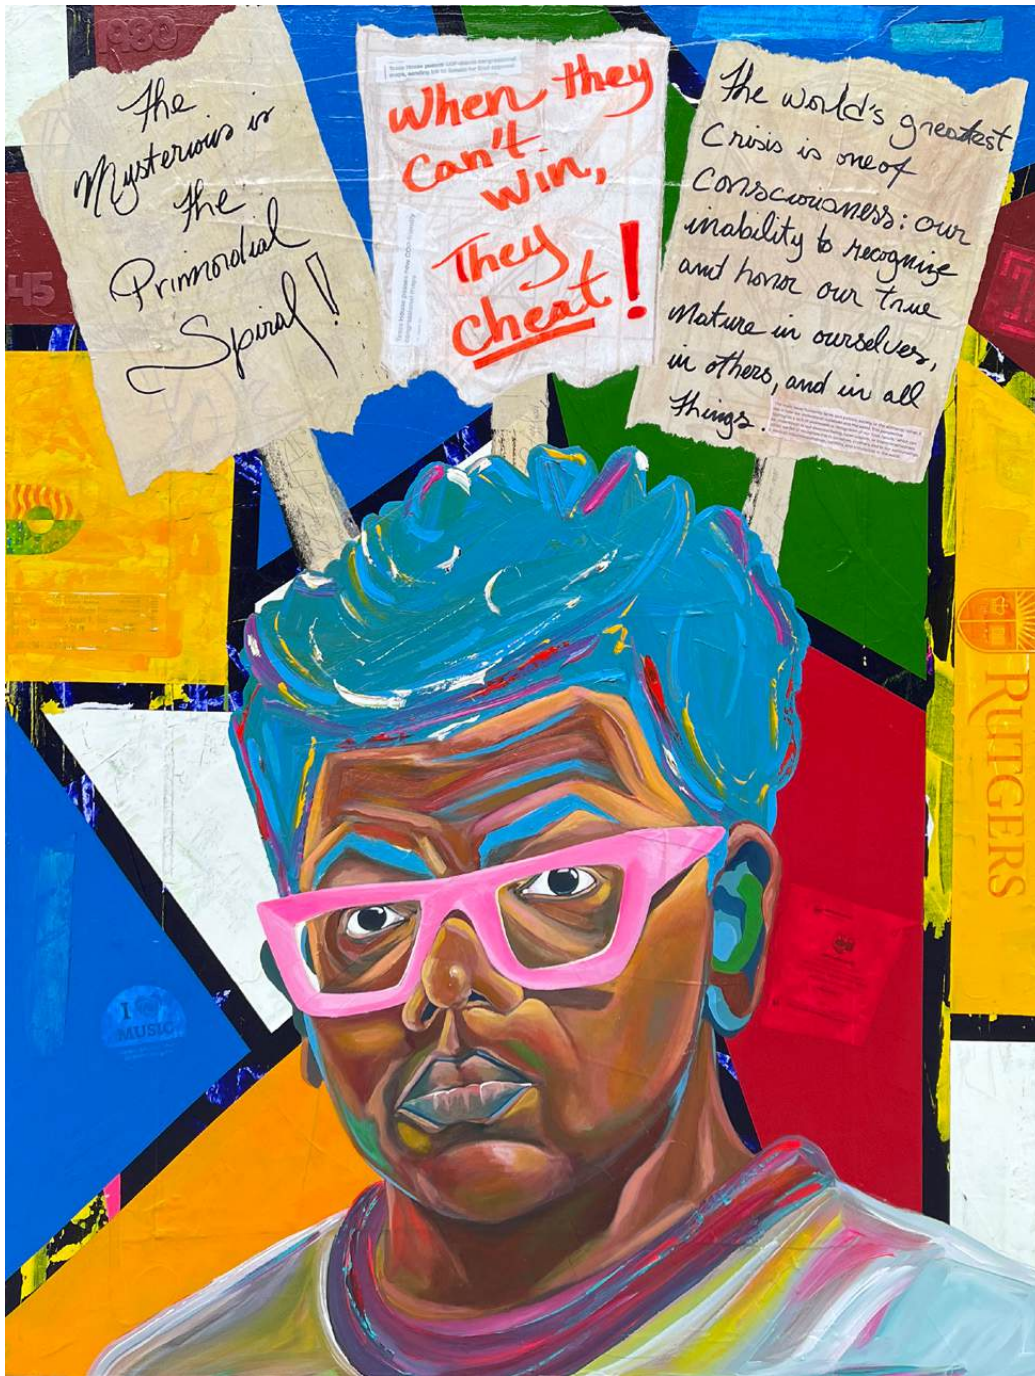 1980
The
Mysterious is
the
Primordial
Spiral!
When they
can't
win,
They
cheat!
The world's greatest
Crisis is one of
consciousness: our
inability to recognize
and honor our true
nature in ourselves,
in others, and in all
things.
45
RUTGERS
I
MUSIC